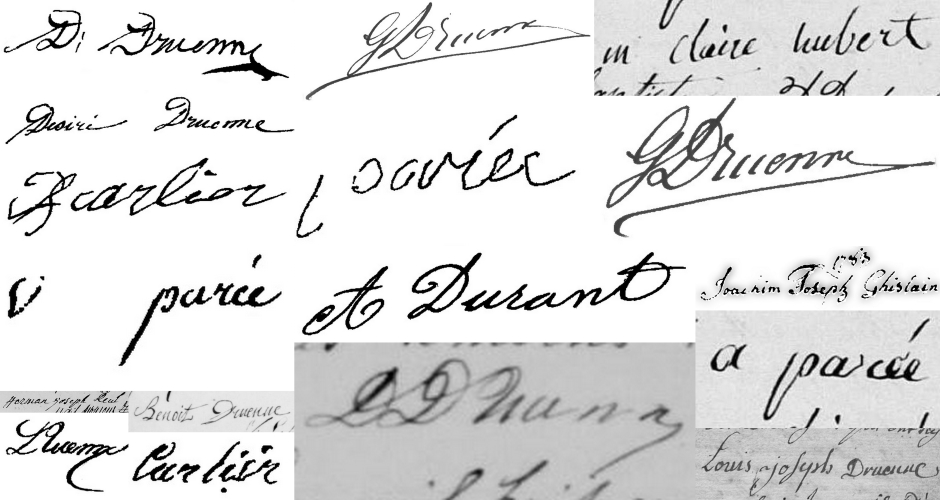 D: Druenne
G Druenne
claire hubert
Desiré Druenne
carlier
parée
G Druenne
parée
A Durant
1783
Joachim Joseph Ghislain
a parée
herman joseph
Benoit Druenne
D Druenne
L Druenne
Carlier
Louis joseph Druenne